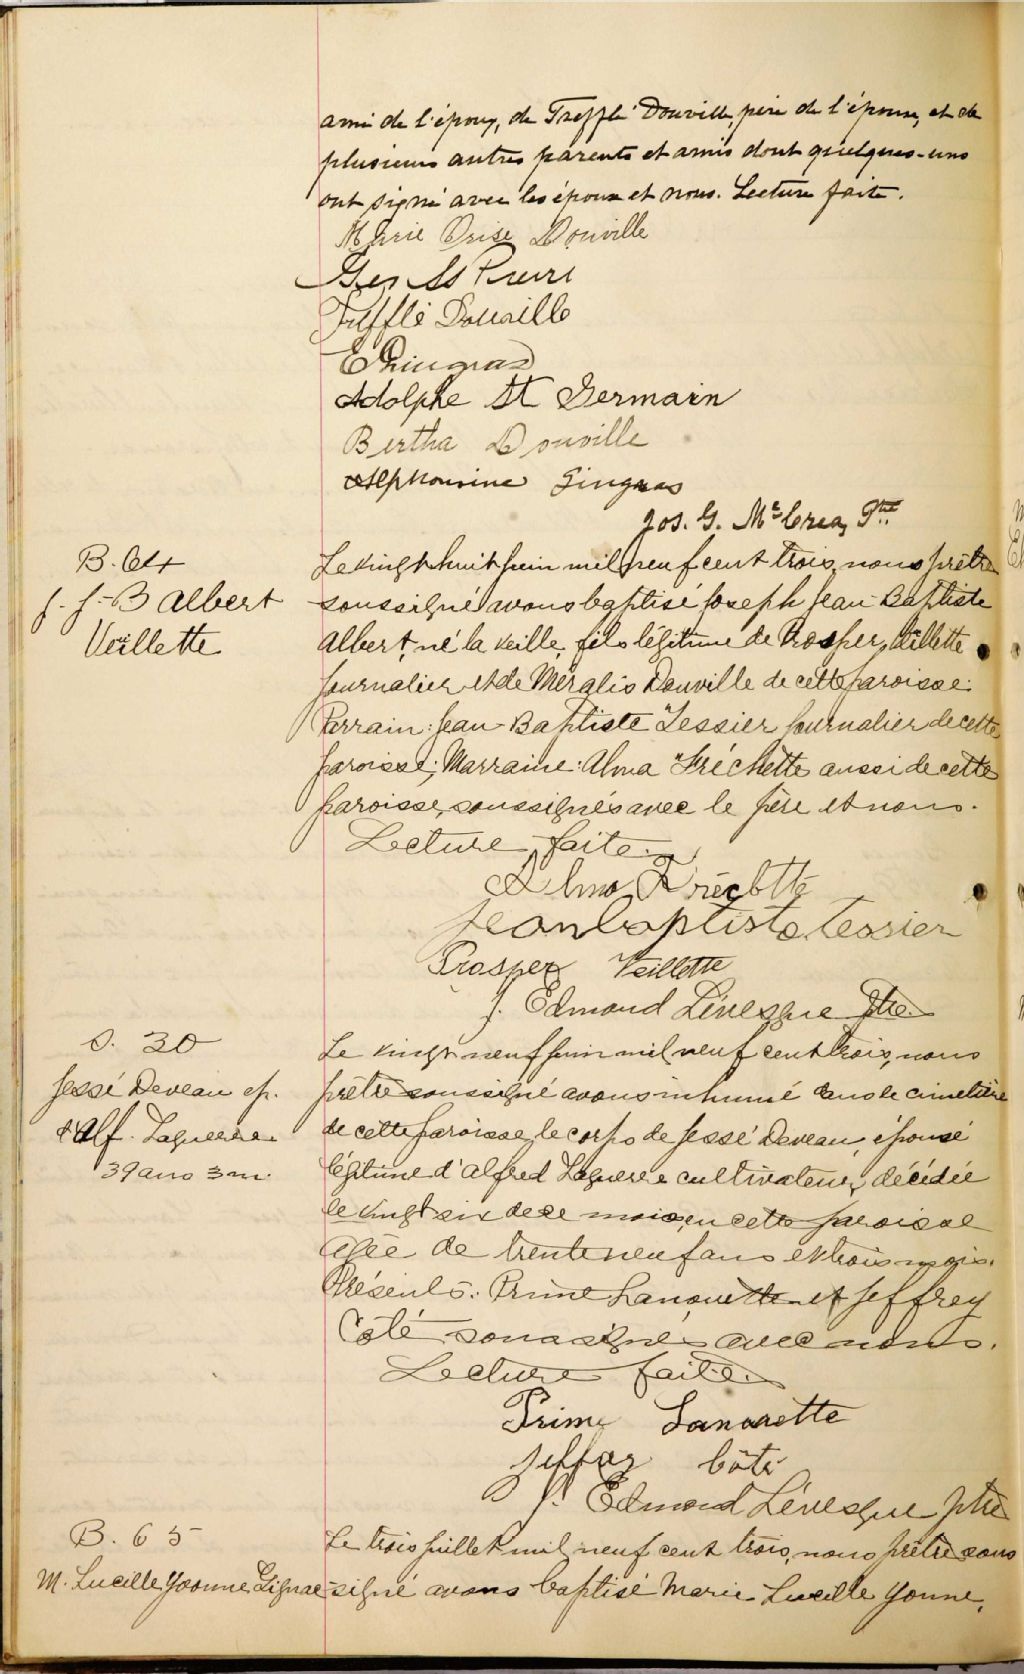 ami de l'époux, de Trefflé Douville, père de l'épouse, et de
plusieurs autres parents et amis dont quelques-uns
ont signé avec les époux et nous. Lecture faite.
Marie Orise Douville
Geo St Pierre
Trefflé Douville
E Gingras
Adolphe St Germain
Bertha Douville
Alphonsine Gingras
Jos. G. McCrea, Ptre
B. 64
J. J-B Albert
Veillette
Le vingt huit juin mil neuf cent trois, nous prêtre
soussigné avons baptisé Joseph Jean-Baptiste
Albert, né la veille, fils légitime de Prosper Veillette
journalier et de Méralis Douville de cette paroisse.
Parrain: Jean-Baptiste Tessier journalier de cette
paroisse; Marraine: Alma Fréchette aussi de cette
paroisse, soussignés avec le père et nous.
Lecture faite.
Alma Fréchette
Jean baptiste tessier
Prosper Veillette
J. Edmond Lévesque ptre.
S. 30
Jessé Deveau ép.
d'Alf. Laguerre
39 ans 3 m.
Le vingt neuf juin mil neuf cent trois, nous
prêtre soussigné avons inhumé dans le cimetière
de cette paroisse, le corps de Jessé Deveau, épouse
légitime d'Alfred Laguerre cultivateur, décédée
le vingt six de ce mois, en cette paroisse
agée de trente neuf ans et trois mois.
Présents: Prime Lanouette et Jeffrey
Côté soussignés avec nous.
Lecture faite.
Prime Lanouette
Jeffrey Côté
J. Edmond Lévesque ptre
B. 65
M. Lucille Yvonne Lignac
Le trois juillet mil neuf cent trois, nous prêtre sous
signé avons baptisé Marie Lucille Yvonne,